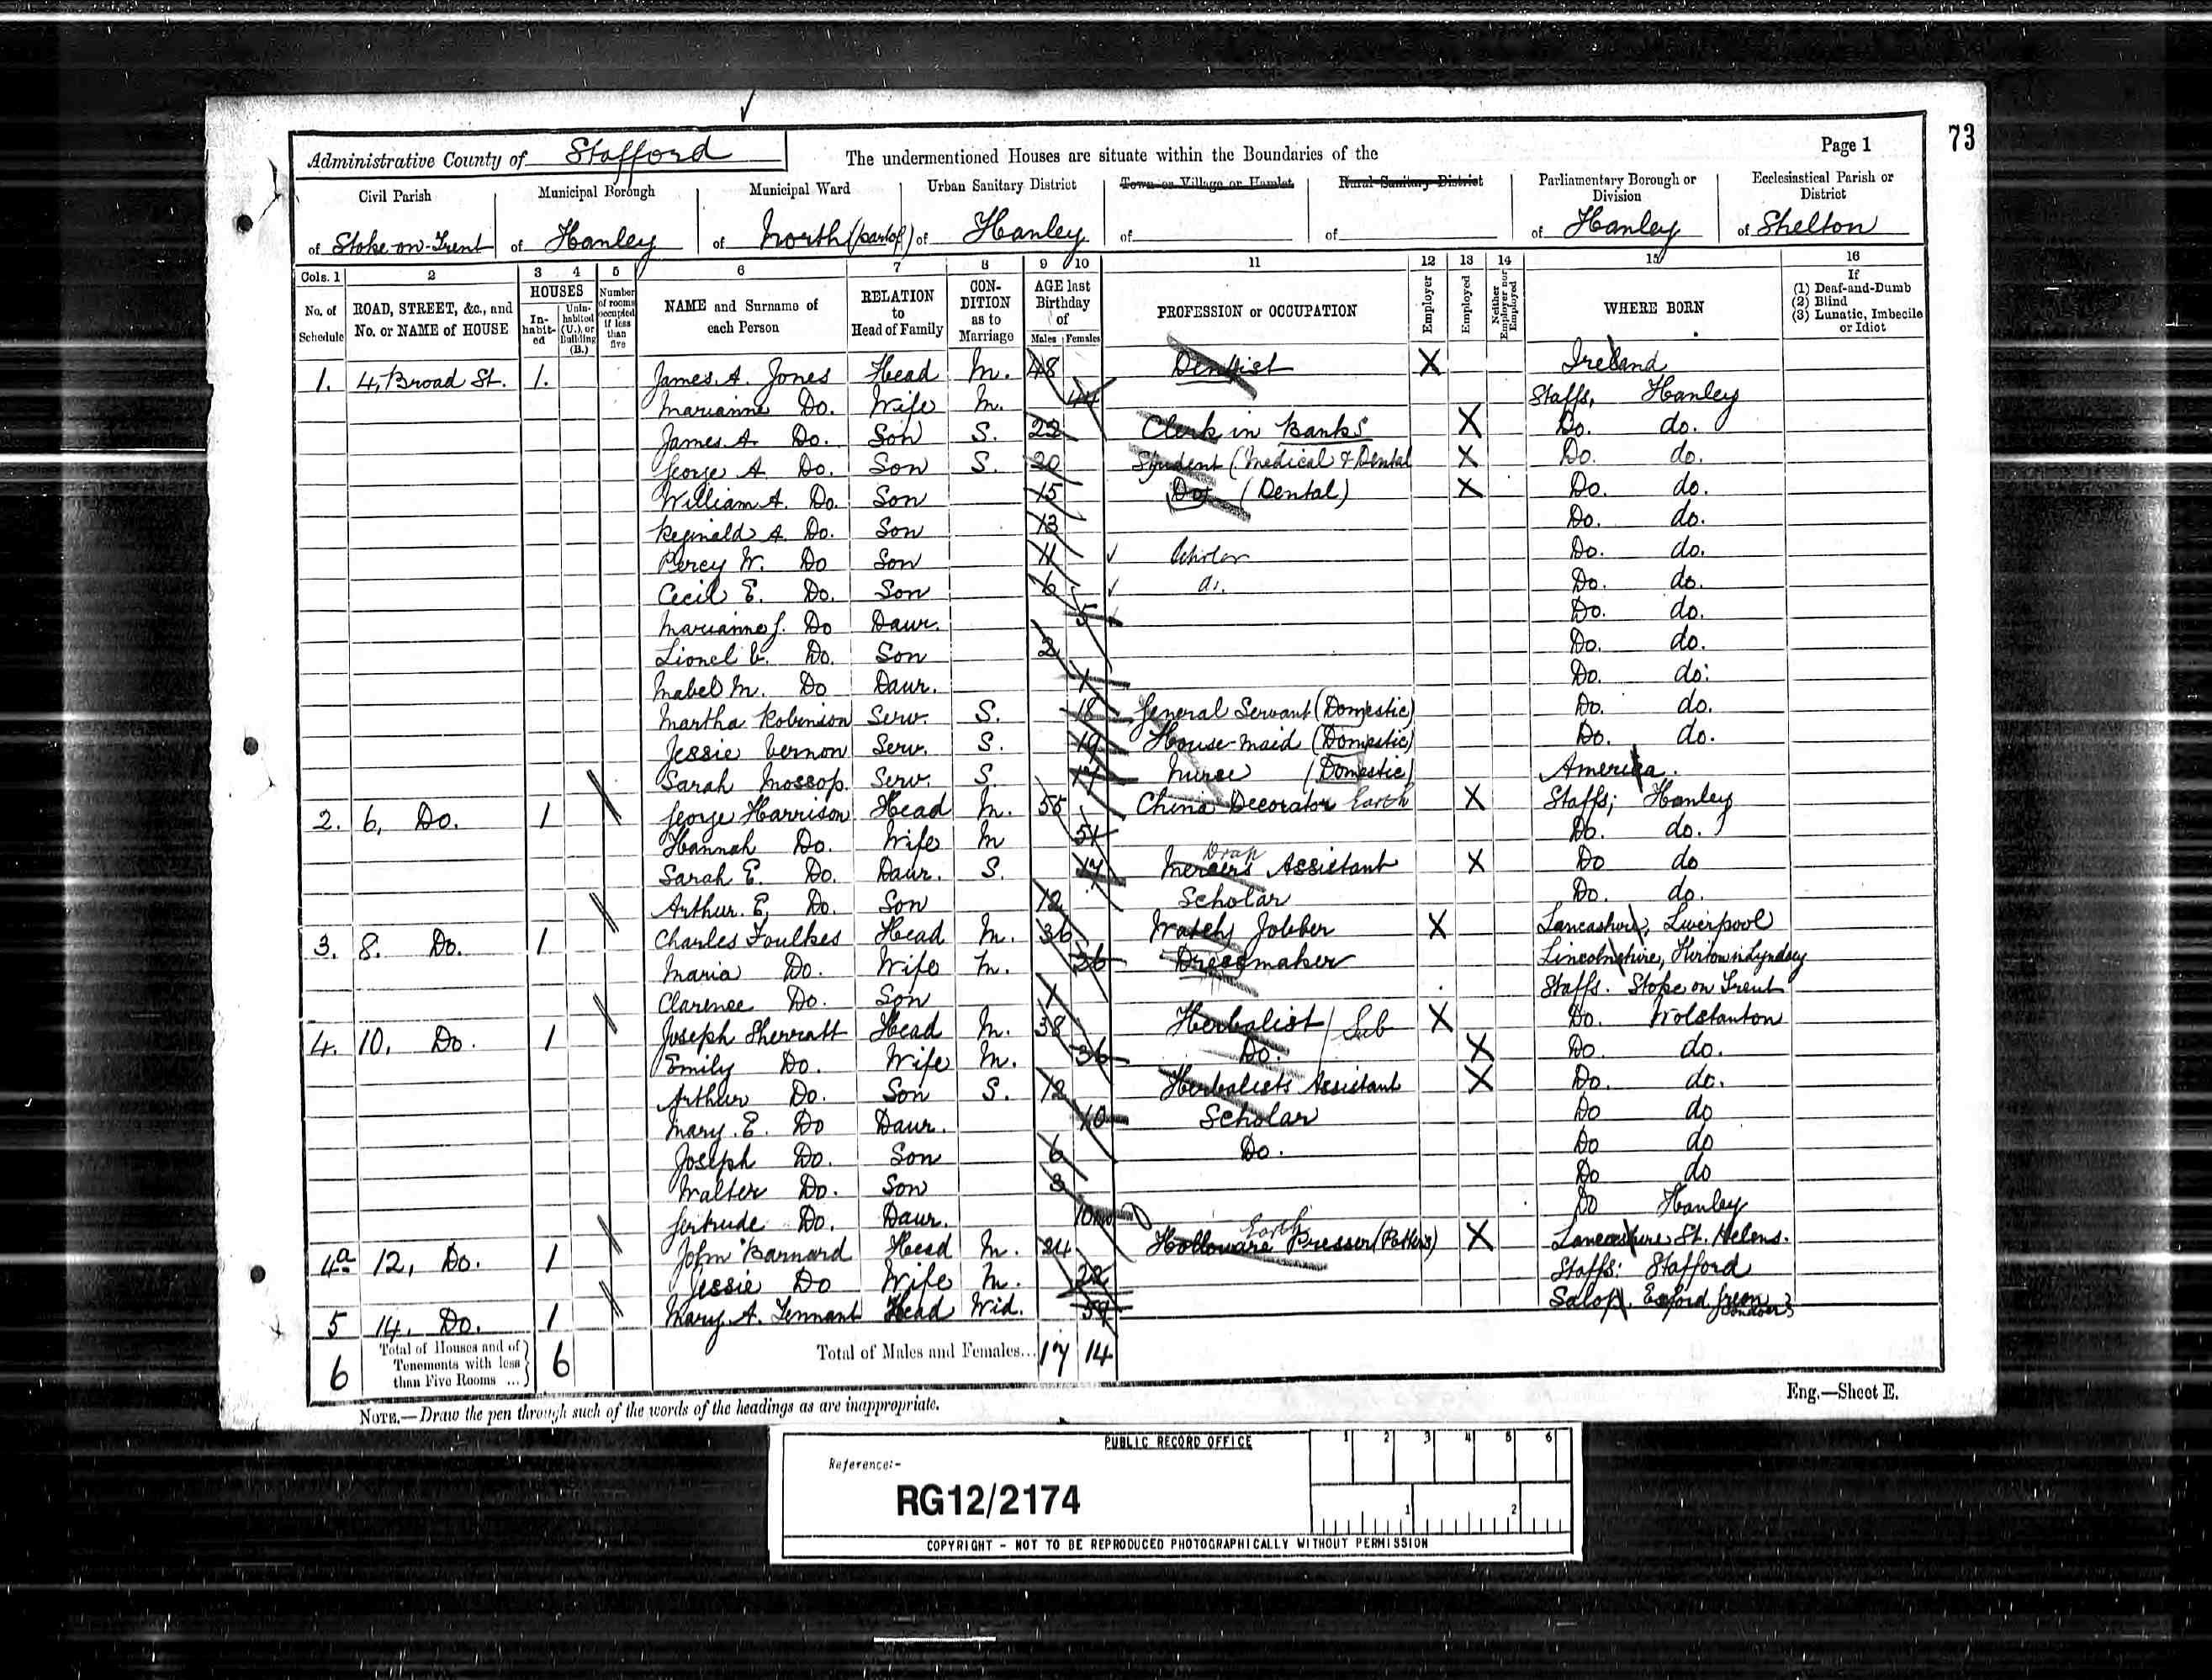 73
Administrative County of Stafford The undermentioned Houses are situate within the Boundaries of the Page 1
Civil Parish Municipal Borough Municipal Ward Urban Sanitary District Town or Village or Hamlet Rural Sanitary District Parliamentary Borough or Division Ecclesiastical Parish or District
of Stoke-on-Trent of Hanley of North (part of) of Hanley of of of Hanley of Shelton
Cols. 1 2 3 4 5 6 7 8 9 10 11 12 13 14 15 16
No. of Schedule ROAD, STREET, &c., and No. or NAME of HOUSE HOUSES In-habit-ed Unin-habited (U.), or Building (B.) Number of rooms occupied if less than five NAME and Surname of each Person RELATION to Head of Family CON-DITION as to Marriage AGE last Birthday of Males Females PROFESSION or OCCUPATION Employer Employed Neither Employer nor Employed WHERE BORN If (1) Deaf-and-Dumb (2) Blind (3) Lunatic, Imbecile or Idiot
1. 4, Broad St. 1. James. A. Jones Head M. 48 Dentist X Ireland
Marianne Do. Wife M. 44 Staffs, Hanley
James A. Do. Son S. 22 Clerk in Banks X Do. do.
George A. Do. Son S. 20 Student (Medical & Dental X Do. do.
William A. Do. Son 15 Do (Dental) X Do. do.
Reginald A. Do. Son 13 Do. do.
Percy W. Do Son 11 Scholar Do. do.
Cecil E. Do. Son 6 do. Do. do.
Marianne J. Do Daur. 5 Do. do.
Lionel C. Do. Son 2 Do. do.
Mabel M. Do Daur. 1 Do. do.
Martha Robinson Serv. S. 18 General Servant (Domestic) Do. do.
Jessie Vernon Serv. S. 19 House-maid (Domestic) Do. do.
Sarah Mossop. Serv. S. 17 Nurse (Domestic) America.
2. 6, Do. 1 George Harrison Head M. 55 China Decorator Earth X Staffs; Hanley
Hannah Do. Wife M 51 Do. do.
Sarah E. Do. Daur. S. 17 Mercers Assistant Drap X Do do
Arthur. E. Do. Son 12 Scholar Do. do.
3. 8. Do. 1 Charles Foulkes Head M. 36 Watch Jobber X Lancashire, Liverpool
Maria Do. Wife M. 36 Dressmaker Lincolnshire, Kirton in Lyndsey
Clarence Do. Son 1 Staffs. Stoke on Trent
4. 10, Do. 1 Joseph Sherratt Head M. 38 Herbalist X Do. Wolstanton
Emily Do. Wife M. 36 Do. X Do. do.
Arthur Do. Son S. 12 Herbalists Assistant X Do. do.
Mary. E. Do Daur. 10 Scholar Do do
Joseph Do. Son 6 Do. Do do
Walter Do. Son 3 Do do
Gertrude Do. Daur. 10mo Do Hanley
4a 12, Do. 1 John Barnard Head M. 24 Holloware Presser (Potters) Earth X Lancashire St. Helens.
Jessie Do Wife M. 22 Staffs: Stafford
5 14, Do. 1 Mary. A. Tennant Head Wid. 59 Salop. Green
6 Total of Houses and of Tenements with less than Five Rooms ... 6 Total of Males and Females... 17 14
NOTE.—Draw the pen through such of the words of the headings as are inappropriate. Eng.—Sheet E.
PUBLIC RECORD OFFICE 1 2 3 4 5 6
Reference:-
RG12/2174
1 2
COPYRIGHT - NOT TO BE REPRODUCED PHOTOGRAPHICALLY WITHOUT PERMISSION